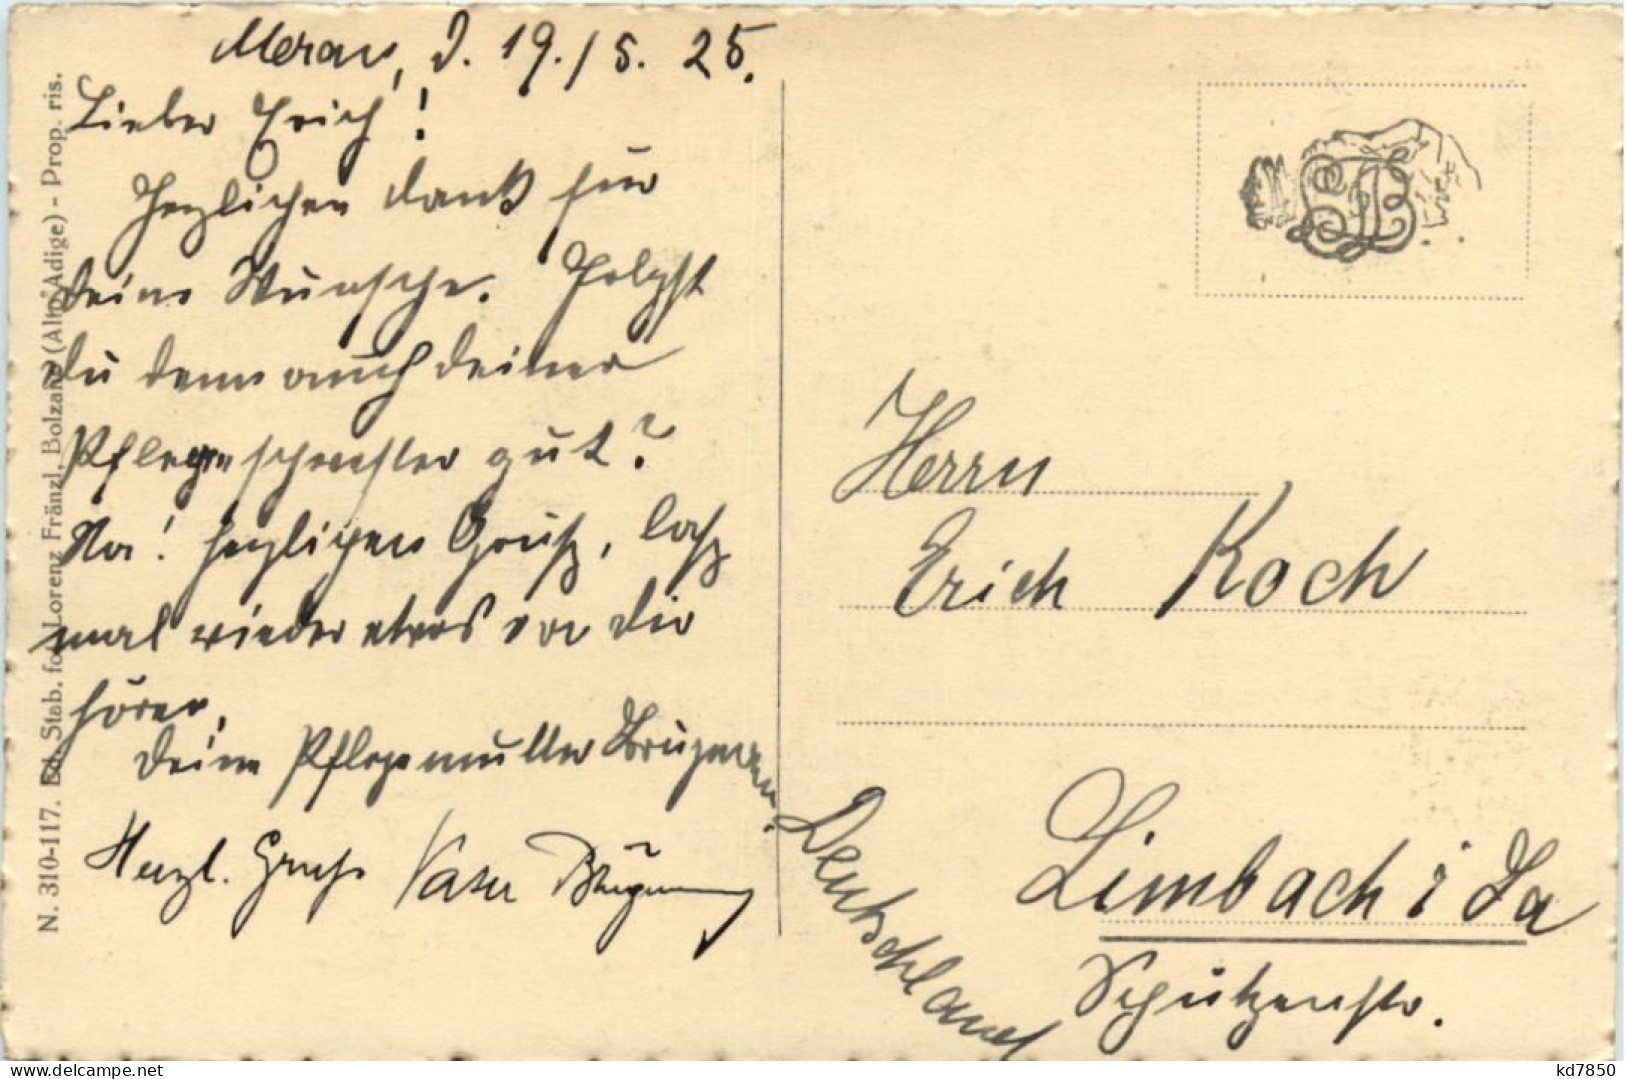 Meran, d. 19./5. 25.
Lieber Erich!
Herzlichen Dank für
deine Wünsche. Folgst
du denn auch deiner
Pflegeschwester gut?
Na! Herzlichen Gruß, laß
mal wieder etwas von dir
hören,
deine Pflegemutter
Herzl. Gruß Vater
Herrn
Erich Koch
Limbach i Sa
Schützenstr.
Deutschland
N. 310-117. Ed. Stab. fot. Lorenz Fränzl, Bolzano (Alto Adige) - Prop. ris.
kd7850
www.delcampe.net